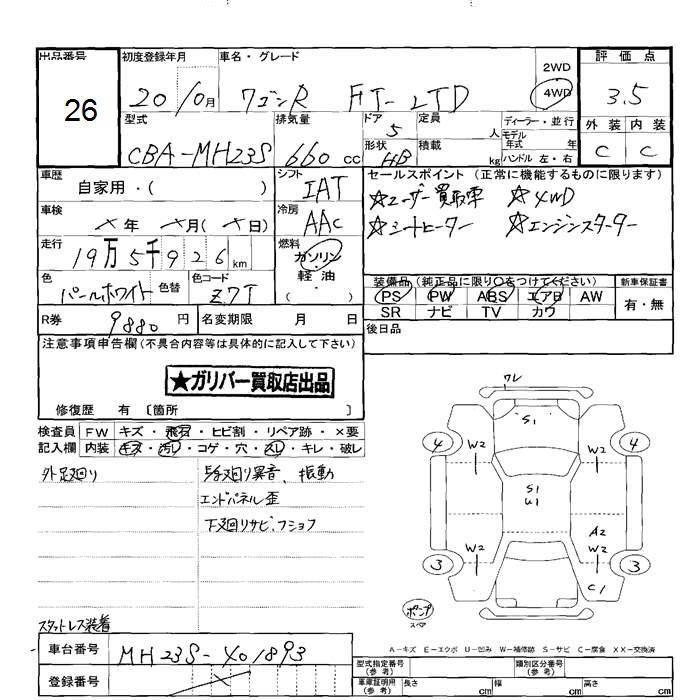 出品番号 初度登録年月 車名・グレード 2WD 評価点
26 20/0月 ワゴンR FT-LTD 4WD 3.5
型式 排気量 ドア 定員 ディーラー・並行 外装 内装
5 人 モデル年式 年
CBA-MH23S 660cc 形状 HB 積載 kg ハンドル 左・右 C C
車歴 シフト セールスポイント(正常に機能するものに限ります)
自家用・( ) IAT ☆ユーザー買取車 ☆4WD
車検 冷房 ☆シートヒーター ☆エンジンスターター
×年 ×月(×日) AAC
走行 燃料
19万5千926km ガソリン
軽油
( )
色 色替 色コード 装備品(純正品に限り○をつけてください) 新車保証書
パールホワイト Z7T PS PW ABS エアB AW 有・無
SR ナビ TV カワ
R券 9880円 名変期限 月 日 後日品
注意事項申告欄(不具合内容等は具体的に記入して下さい)
★ガリバー買取店出品
修復歴 有 〔箇所 〕
検査員 FW キズ・飛石・ヒビ割・リペア跡・×要
記入欄 内装 キズ・汚レ・コゲ・穴・スレ・キレ・破レ
外足廻り 異音、振動
エンドパネル歪
下廻りサビ、フショク
ワレ
S1
4 W2 W2 4
S1
U1
A2
W2 W2
3 3
C1
ポンプ
スペア
スタットレス装着
A-キズ E-エクボ U-凹み W-補修跡 S-サビ C-腐食 XX-交換済
車台番号 MH23S-401893
型式指定番号(参考) 類別区分番号(参考)
登録番号 ×
車庫証明用(参考) 長さ cm 幅 cm 高さ cm